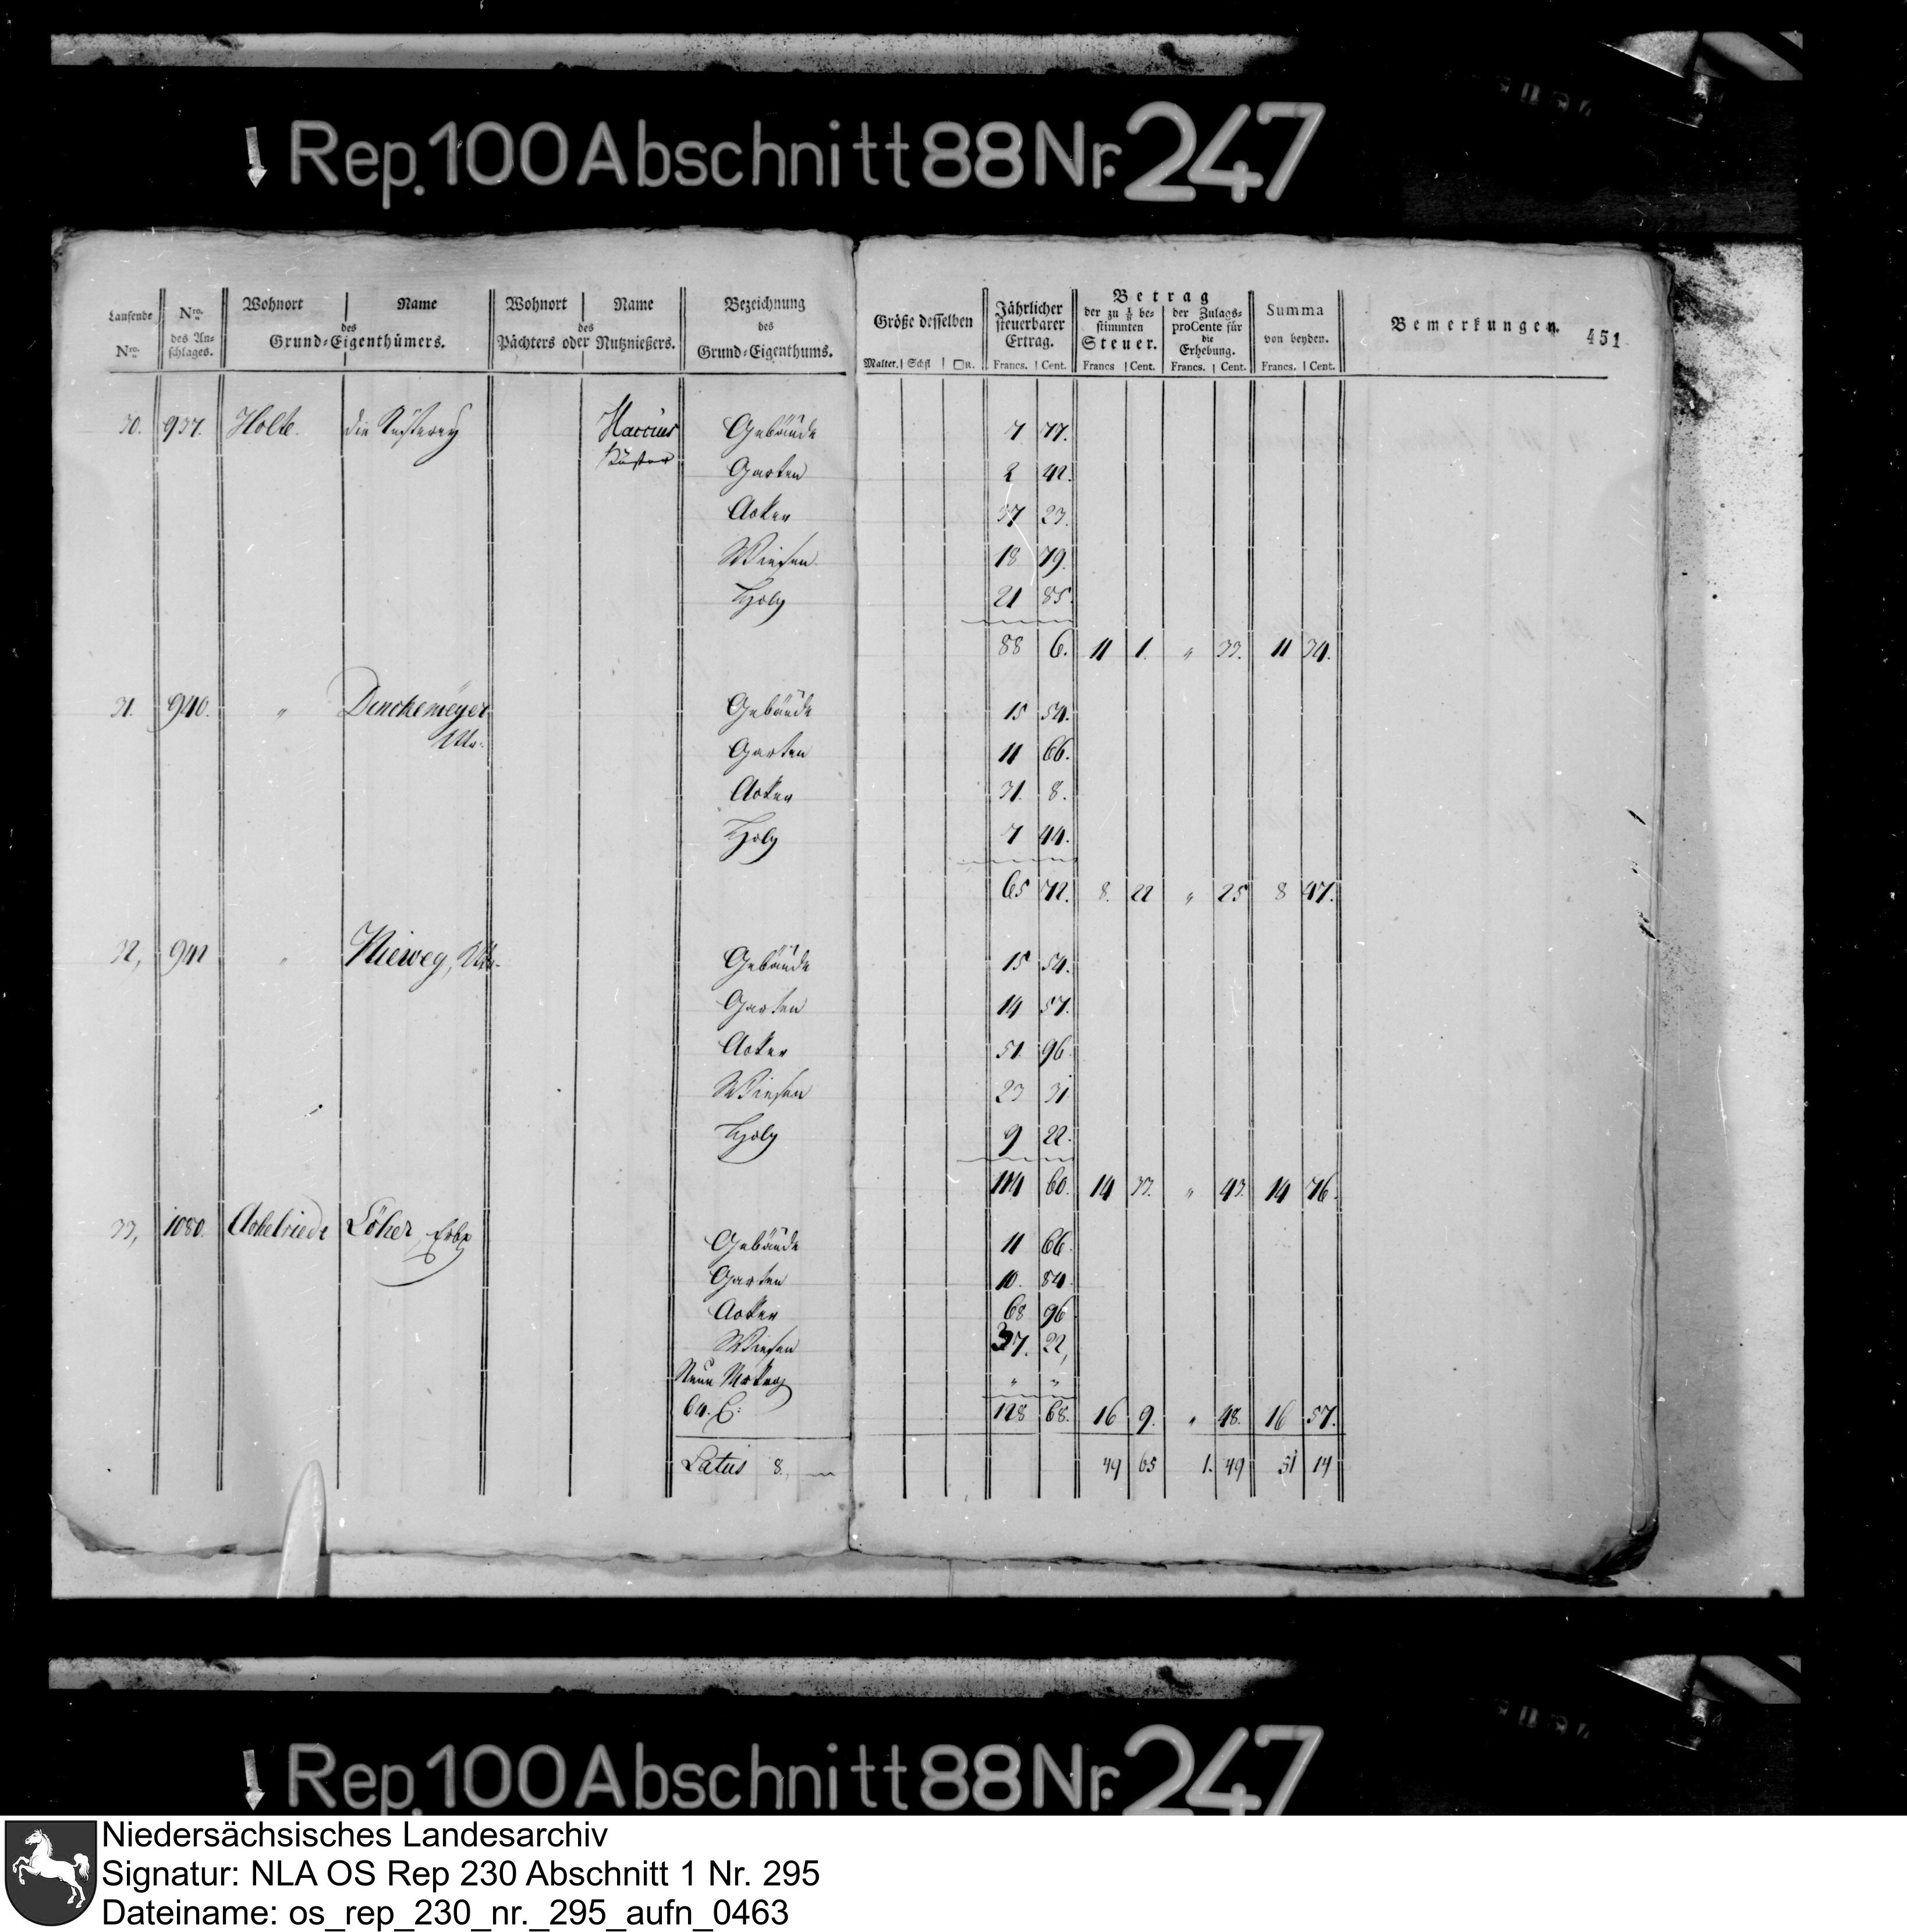 Rep.100 Abschnitt 88 Nr. 247
Laufende Nro. | Nro. des Anschlages. | Wohnort | Name des Grund-Eigenthümers. | Wohnort | Name des Pächters oder Nutznießers. | Bezeichnung des Grund-Eigenthums. | Größe desselben Malter. | Schfl | □R. | Jährlicher steuerbarer Ertrag. Francs. | Cent. | Betrag der zu ⅛ bestimmten Steuer. Francs | Cent. | der Zulags-proCente für die Erhebung. Francs. | Cent. | Summa von beyden. Francs. | Cent. | Bemerkungen. 451
30. 937. Holte. die Küsterey Harcius Gebäude 7 77.
Küster
Garten 2 42.
Acker 37 23.
Wiesen 18 79.
Holz 21 85.
88 6. 11 1. " 33. 11 34.
31. 940. " Dinckemeyer Gebäude 15 54.
Garten 11 66.
Acker 31. 8.
Holz 7 44.
65 72. 8. 22 " 25 8 47.
32, 941 " Nieweg, Gebäude 15 54.
Garten 14 57.
Acker 51. 96
Wiesen 23 31
Holz 9 22.
114 60. 14 33. " 43. 14 76.
33, 1080. Achelriede Löker, Erbp Gebäude 11 66.
Garten 10. 84.
Acker 68 96
Wiesen 37. 22,
Neue " "
64. C: 128 68. 16 9. " 48. 16 57.
Latus 8. 49 65 1. 49 51 14
Rep.100 Abschnitt 88 Nr. 247
Niedersächsisches Landesarchiv
Signatur: NLA OS Rep 230 Abschnitt 1 Nr. 295
Dateiname: os_rep_230_nr._295_aufn_0463